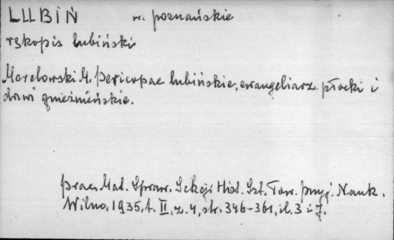 LUBIŃ w. poznańskie
rękopis lubiński
Morelowski M. Pericopae lubińskie, ewangeliarz płocki i
drzwi gnieźnieńskie.
Prac. Mat. Spraw. Sekcji Hist. Szt. Tow. Przyj. Nauk.
Wilno, 1935, t. II, z. 4, str. 346-361, il. 3 i 7.